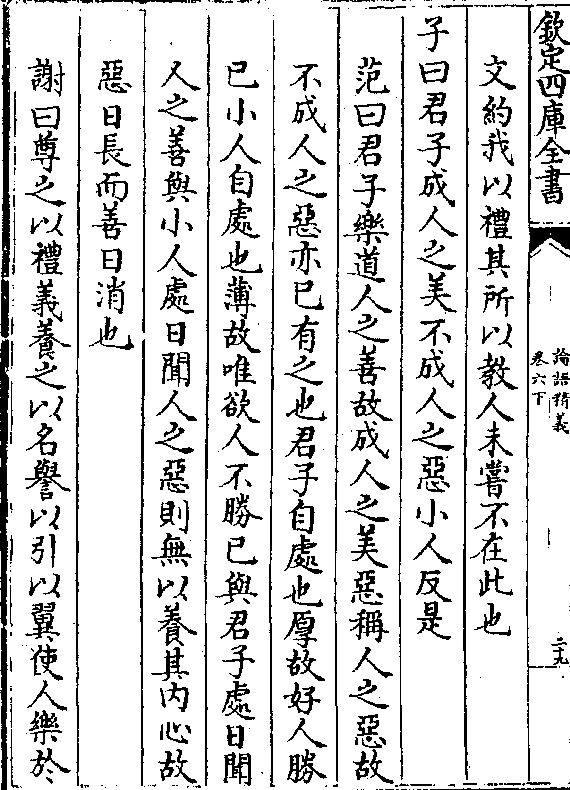 欽定四庫全書
論語精義
卷六下
二九
文約我以禮其所以教人未嘗不在此也
子曰君子成人之美不成人之惡小人反是
范曰君子樂道人之善故成人之美惡稱人之惡故
不成人之惡亦已有之也君子自處也厚故好人勝
已小人自處也薄故唯欲人不勝已與君子處日聞
人之善與小人處日聞人之惡則無以養其内心故
惡日長而善日消也
謝曰尊之以禮義養之以名譽以引以翼使人樂於